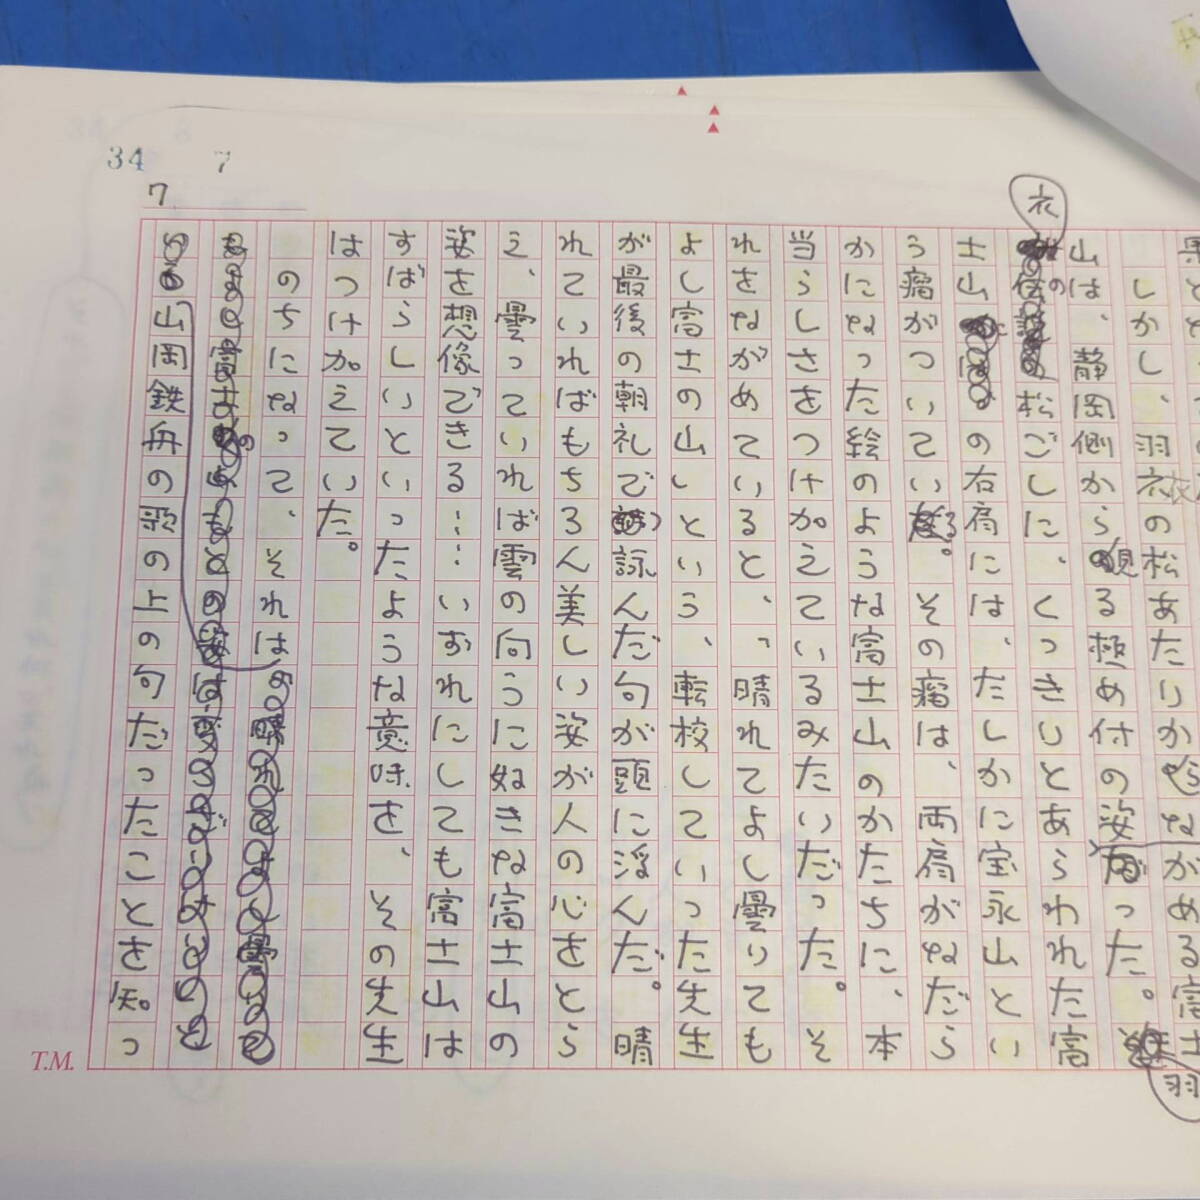 34 7
7
果と
しかし、羽衣の松あたりからながめる富士
山は、静岡側から観る極め付の姿だった。羽
衣の松ごしに、くっきりとあらわれた富
士山の右肩には、たしかに宝永山とい
う瘤がついている。その瘤は、両肩がなだら
かになった絵のような富士山のかたちに、本
当らしさをつけ加えているみたいだった。そ
れをながめていると、、晴れてよし曇りても
よし富士の山しという、転校していった先生
が最後の朝礼で詠んだ句が頭に浮んだ。晴
れていればもちろん美しい姿が人の心をとら
え、曇っていれば雲の向うに妙きな富士山の
姿を想像できる……いずれにしても富士山は
すばらしいといったような意味を、その先生
はつけ加えていた。
のちになって、それは
山岡鉄舟の歌の上の句だったことを知っ
T.M.